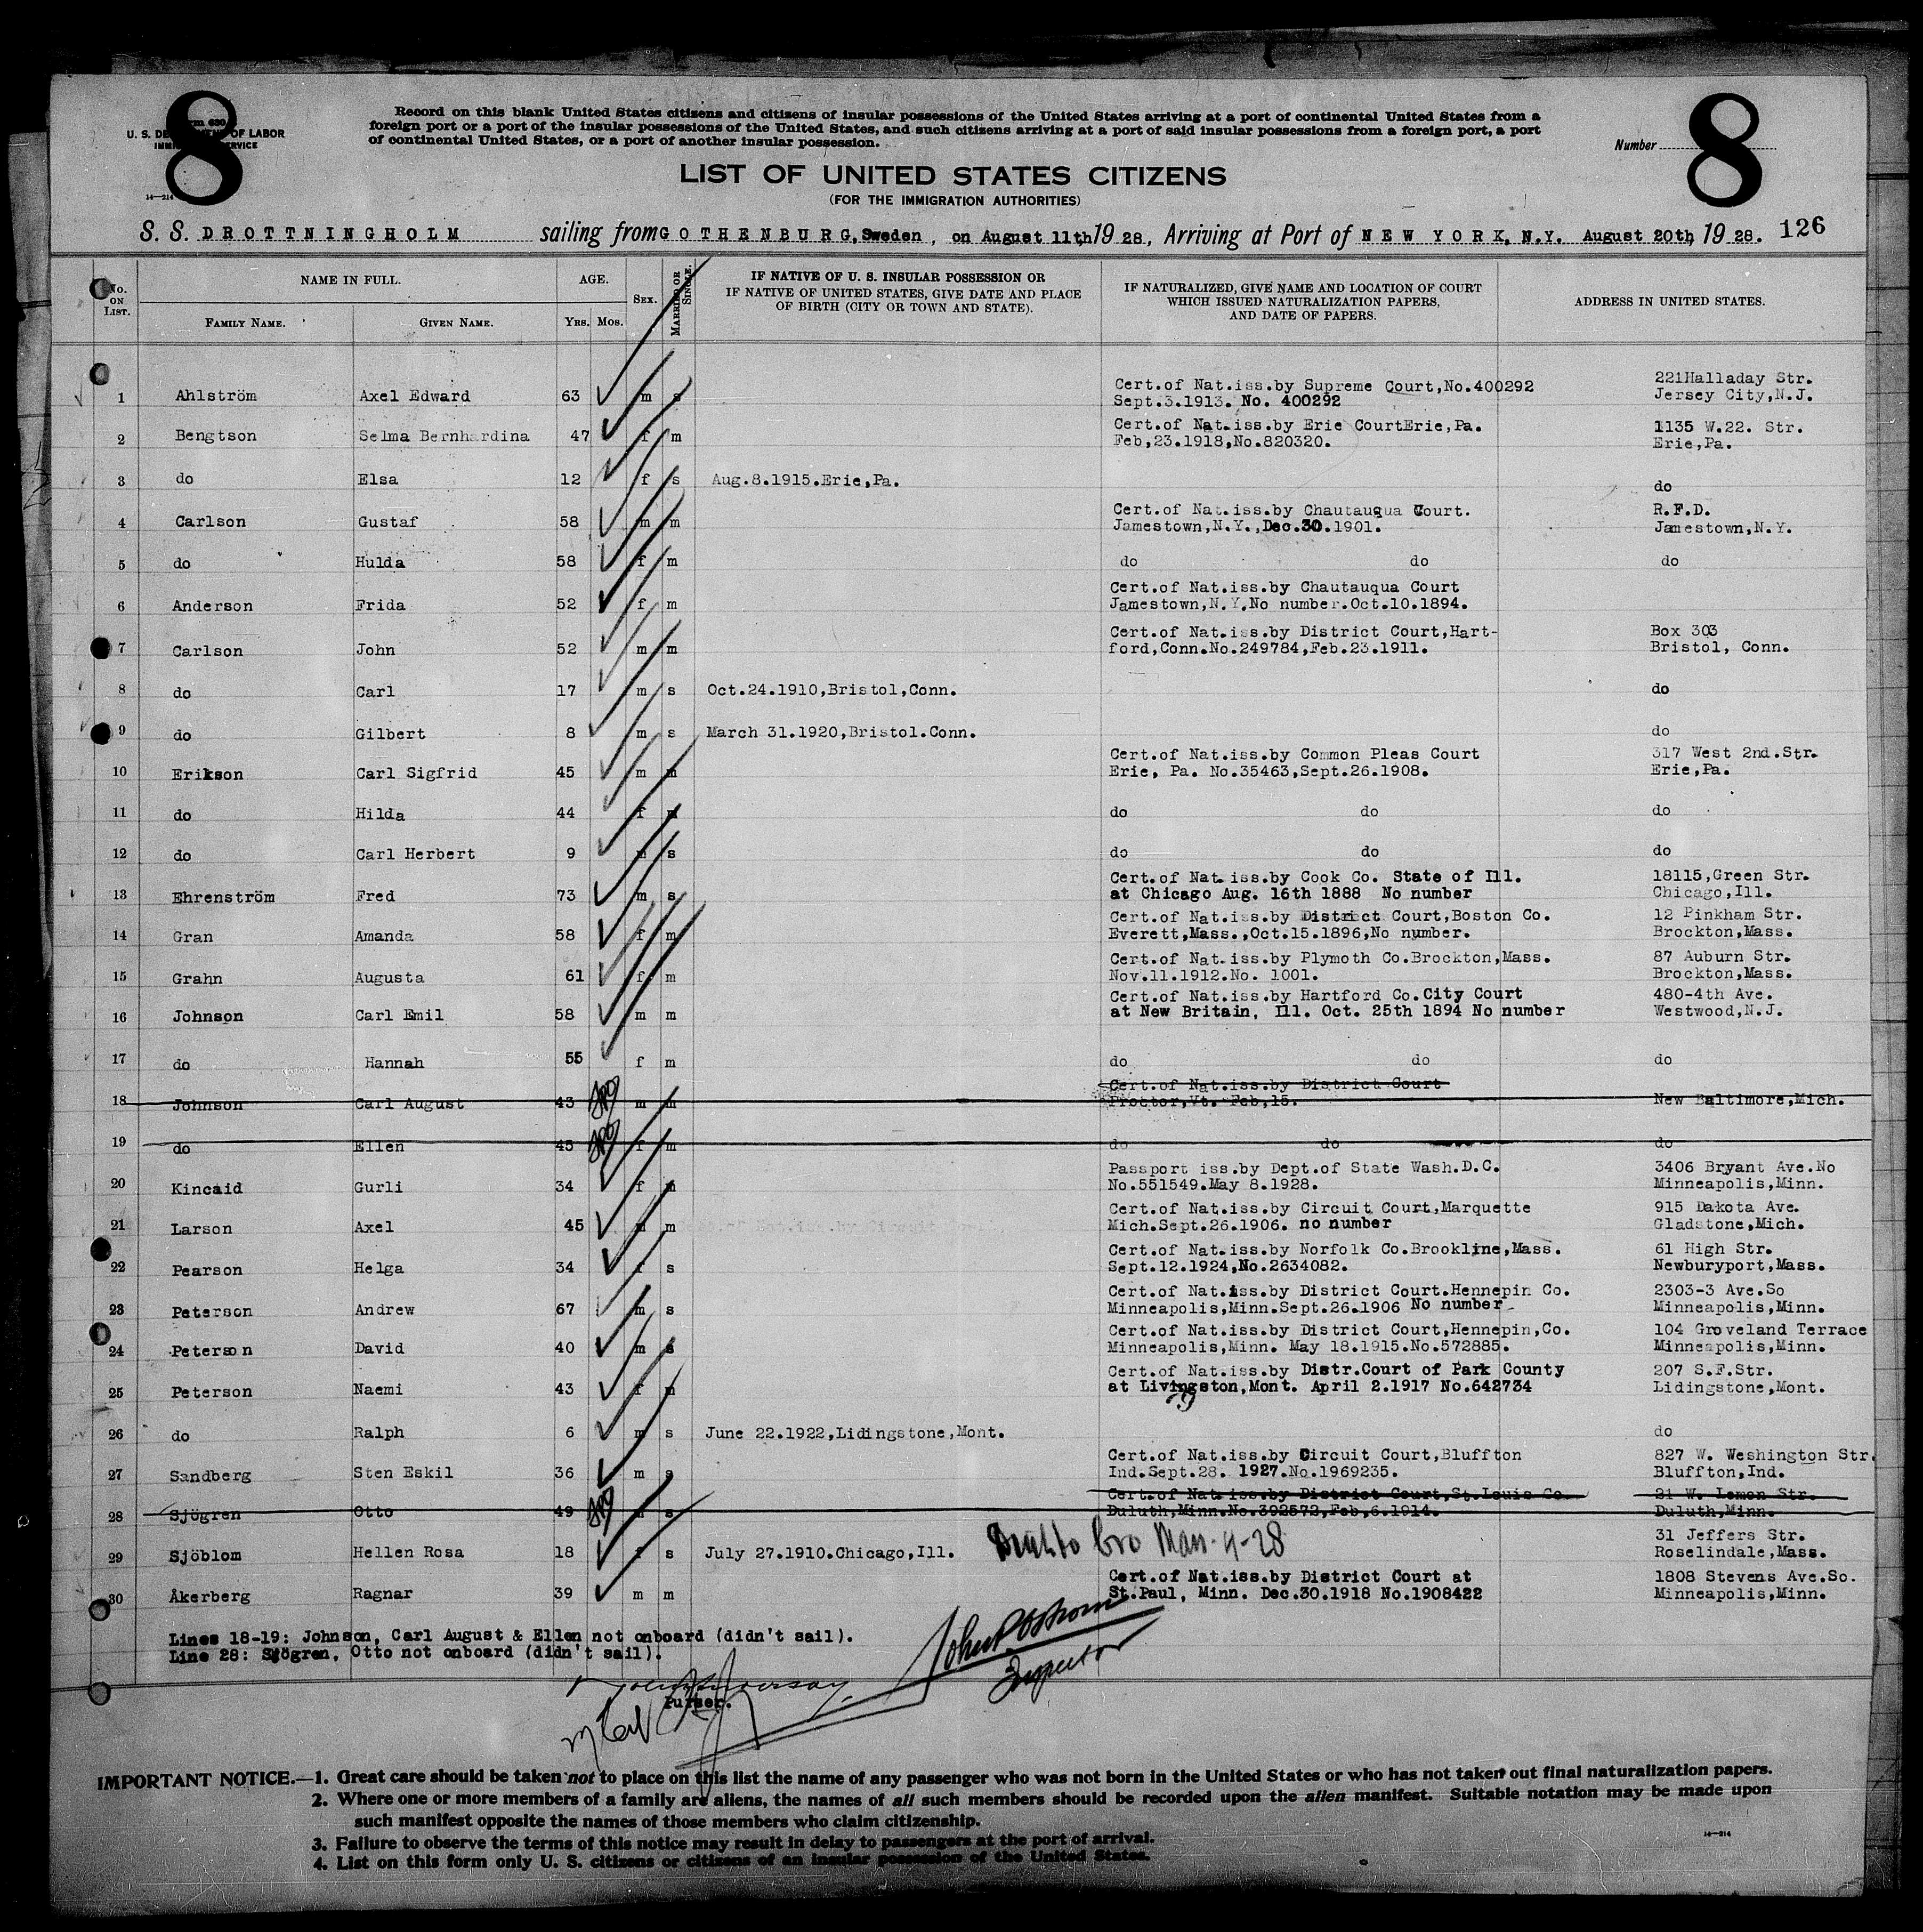 8
8
U. S. DEPARTMENT OF LABOR
Record on this blank United States citizens and citizens of insular possessions of the United States arriving at a port of continental United States from a
foreign port or a port of the insular possessions of the United States, and such citizens arriving at a port of said insular possessions from a foreign port, a port
of continental United States, or a port of another insular possession.
Number
14—214
LIST OF UNITED STATES CITIZENS
(FOR THE IMMIGRATION AUTHORITIES)
S. S. DROTTNINGHOLM sailing from GOTHENBURG, Sweden, on August 11th 1928, Arriving at Port of NEW YORK, N.Y. August 20th, 1928. 126
No. ON LIST. NAME IN FULL. FAMILY NAME. GIVEN NAME. AGE. YRS. MOS. SEX. MARRIED OR SINGLE. IF NATIVE OF U. S. INSULAR POSSESSION OR IF NATIVE OF UNITED STATES, GIVE DATE AND PLACE OF BIRTH (CITY OR TOWN AND STATE). IF NATURALIZED, GIVE NAME AND LOCATION OF COURT WHICH ISSUED NATURALIZATION PAPERS, AND DATE OF PAPERS. ADDRESS IN UNITED STATES.
1 Ahlström Axel Edward 63 m s Cert.of Nat.iss.by Supreme Court,No.400292 221Halladay Str.
Sept.3.1913. No. 400292 Jersey City,N.J.
2 Bengtson Selma Bernhardina 47 f m Cert.of Nat.iss.by Erie CourtErie,Pa. 1135 W.22. Str.
Feb,23.1918,No.820320. Erie,Pa.
3 do Elsa 12 f s Aug.8.1915.Erie,Pa. do
4 Carlson Gustaf 58 m m Cert.of Nat.iss.by Chautauqua Court. R.F.D.
Jamestown,N.Y.,Dec.30.1901. Jamestown,N.Y.
5 do Hulda 58 f m do do do
6 Anderson Frida 52 f m Cert.of Nat.iss.by Chautauqua Court
Jamestown,N.Y.No number.Oct.10.1894.
7 Carlson John 52 m m Cert.of Nat.iss.by District Court,Hart- Box 303
ford,Conn.No.249784,Feb.23.1911. Bristol, Conn.
8 do Carl 17 m s Oct.24.1910,Bristol,Conn. do
9 do Gilbert 8 m s March 31.1920,Bristol.Conn. do
10 Erikson Carl Sigfrid 45 m m Cert.of Nat.iss.by Common Pleas Court 317 West 2nd.Str.
Erie, Pa. No.35463,Sept.26.1908. Erie,Pa.
11 do Hilda 44 f m do do do
12 do Carl Herbert 9 m s do do do
13 Ehrenström Fred 73 m s Cert.of Nat.iss.by Cook Co. State of Ill. 18115,Green Str.
at Chicago Aug. 16th 1888 No number Chicago,Ill.
14 Gran Amanda 58 f m Cert.of Nat.iss.by District Court,Boston Co. 12 Pinkham Str.
Everett,Mass.,Oct.15.1896,No number. Brockton,Mass.
15 Grahn Augusta 61 f m Cert.of Nat.iss.by Plymoth Co.Brockton,Mass. 87 Auburn Str.
Nov.11.1912.No. 1001. Brockton,Mass.
16 Johnson Carl Emil 58 m m Cert.of Nat.iss.by Hartford Co.City Court 480-4th Ave.
at New Britain, Ill. Oct. 25th 1894 No number Westwood,N.J.
17 do Hannah 55 f m do do do
18 Johnson Carl August 43 m m Cert.of Nat.iss.by District Court
Proctor,Vt. Feb,15. New Baltimore,Mich.
19 do Ellen 45 f m do do do
20 Kincaid Gurli 34 f m Passport iss.by Dept.of State Wash.D.C. 3406 Bryant Ave.No
No.551549.May 8.1928. Minneapolis,Minn.
21 Larson Axel 45 m m Cert.of Nat.iss.by Circuit Court,Marquette 915 Dakota Ave.
Mich.Sept.26.1906. no number Gladstone,Mich.
22 Pearson Helga 34 f s Cert.of Nat.iss.by Norfolk Co.Brookline,Mass. 61 High Str.
Sept.12.1924,No.2634082. Newburyport,Mass.
23 Peterson Andrew 67 m s Cert.of Nat.iss.by District Court.Hennepin Co. 2303-3 Ave.So
Minneapolis,Minn.Sept.26.1906 No number Minneapolis,Minn.
24 Peterson David 40 m s Cert.of Nat.iss.by District Court,Hennepin,Co. 104 Groveland Terrace
Minneapolis,Minn. May 18.1915.No.572885. Minneapolis,Minn.
25 Peterson Naemi 43 f m Cert.of Nat.iss.by Distr.Court of Park County 207 S.F.Str.
at Livingston,Mont. April 2.1917 No.642734 Lidingstone,Mont.
26 do Ralph 6 m s June 22.1922,Lidingstone,Mont. do
27 Sandberg Sten Eskil 36 m s Cert.of Nat.iss.by Circuit Court,Bluffton 827 W. Weshington Str.
Ind.Sept.28. 1927.No.1969235. Bluffton,Ind.
28 Sjögren Otto 49 m s Cert.of Nat.iss.by District Court,St.Louis Co. 21 W. Lemon Str.
Duluth,Minn.No.392572,Feb,6.1914. Duluth,Minn.
29 Sjöblom Hellen Rosa 18 f s July 27.1910.Chicago,Ill. 31 Jeffers Str.
Roselindale,Mass.
30 Åkerberg Ragnar 39 m m Cert.of Nat.iss.by District Court at 1808 Stevens Ave.So.
St.Paul, Minn. Dec.30.1918 No.1908422 Minneapolis,Minn.
Lines 18-19: Johnson, Carl August & Ellen not onboard (didn't sail).
Line 28: Sjögren, Otto not onboard (didn't sail).
Inspector
Purser.
IMPORTANT NOTICE.—1. Great care should be taken not to place on this list the name of any passenger who was not born in the United States or who has not taken out final naturalization papers.
2. Where one or more members of a family are aliens, the names of all such members should be recorded upon the alien manifest. Suitable notation may be made upon
such manifest opposite the names of those members who claim citizenship.
3. Failure to observe the terms of this notice may result in delay to passengers at the port of arrival.
4. List on this form only U. S. citizens or citizens of an insular possession of the United States.
14—214